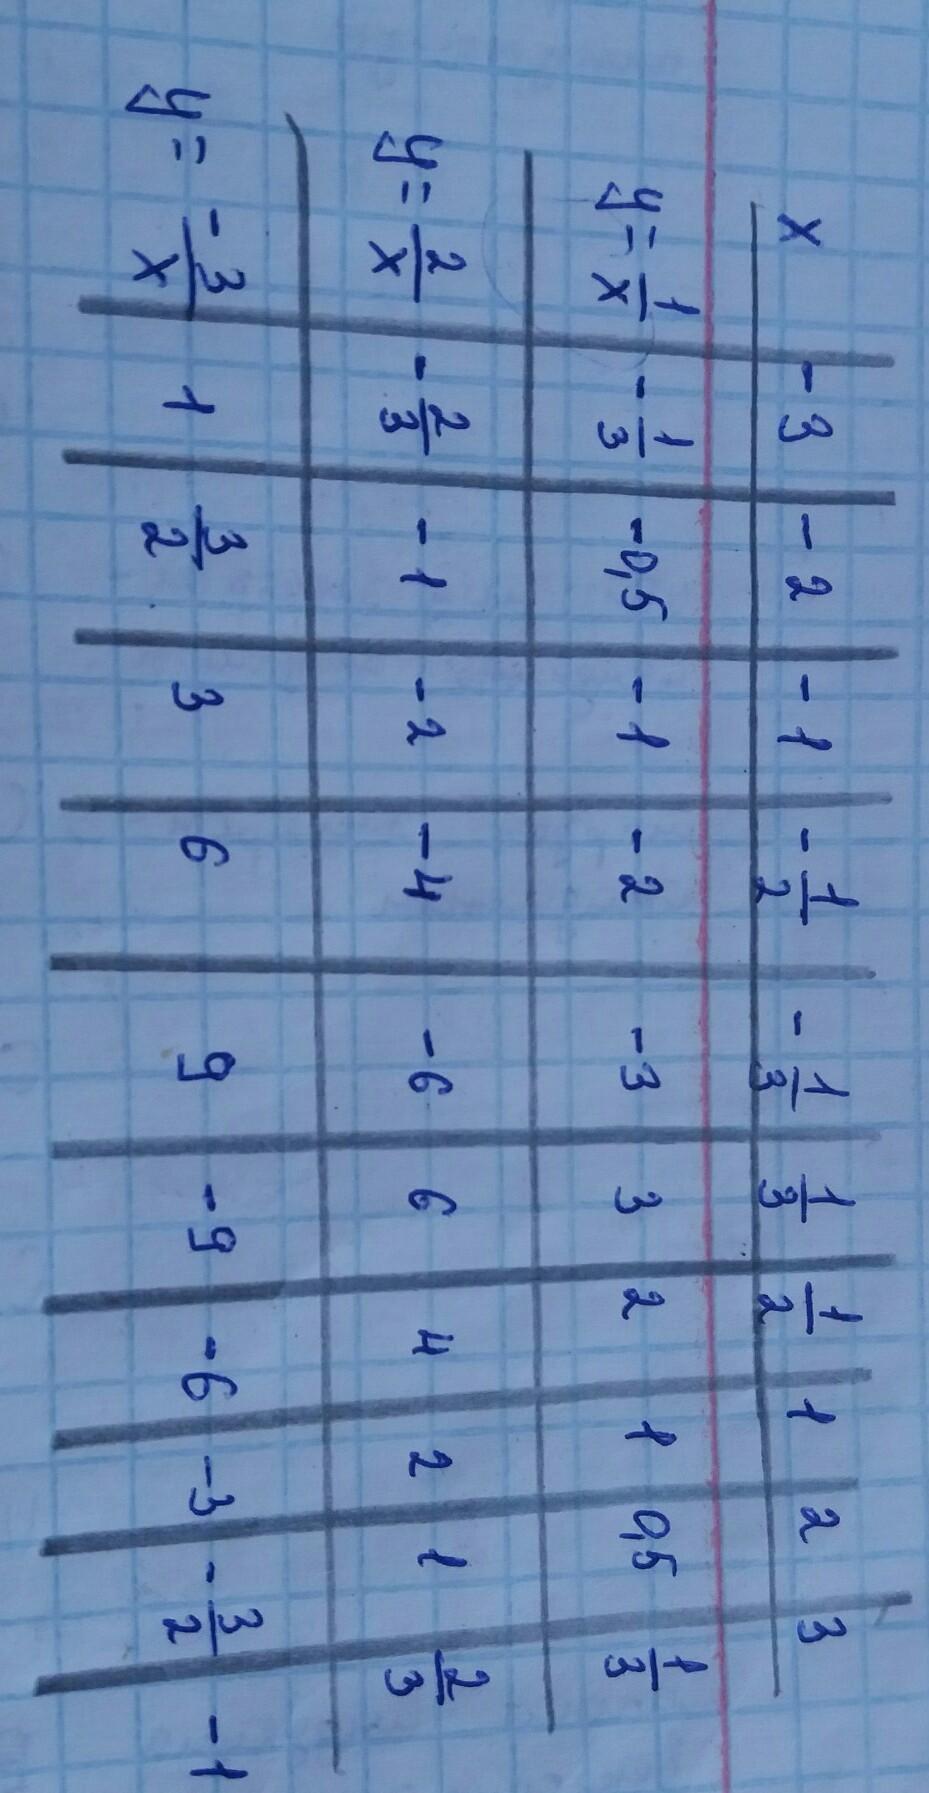 x -3 -2 -1 -1/2 -1/3 1/3 1/2 1 2 3
y = 1/x -1/3 -0,5 -1 -2 -3 3 2 1 0,5 1/3
y = 2/x -2/3 -1 -2 -4 -6 6 4 2 1 2/3
y = -3/x 1 3/2 3 6 9 -9 -6 -3 -3/2 -1